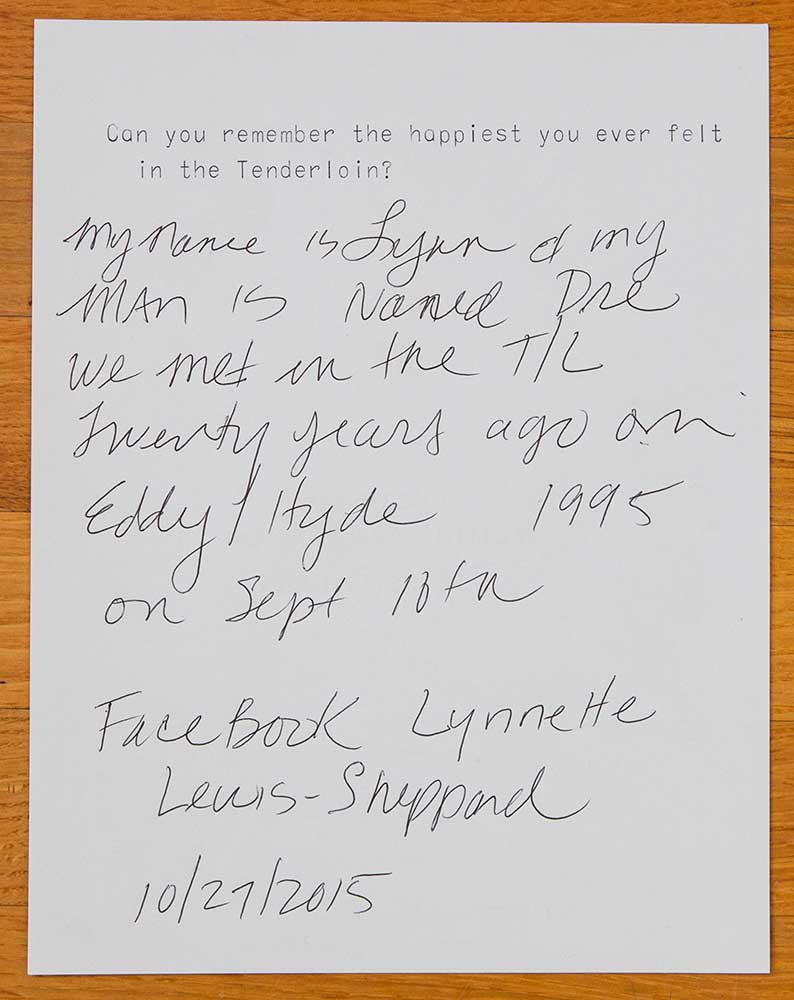 Can you remember the happiest you ever felt
in the Tenderloin?
My Name is Lynn & my
MAn is Named Dre
we met in the T/L
Twenty years ago on
Eddy / Hyde 1995
on Sept 18th
FaceBook Lynnette
Lewis-Sheppard
10/27/2015